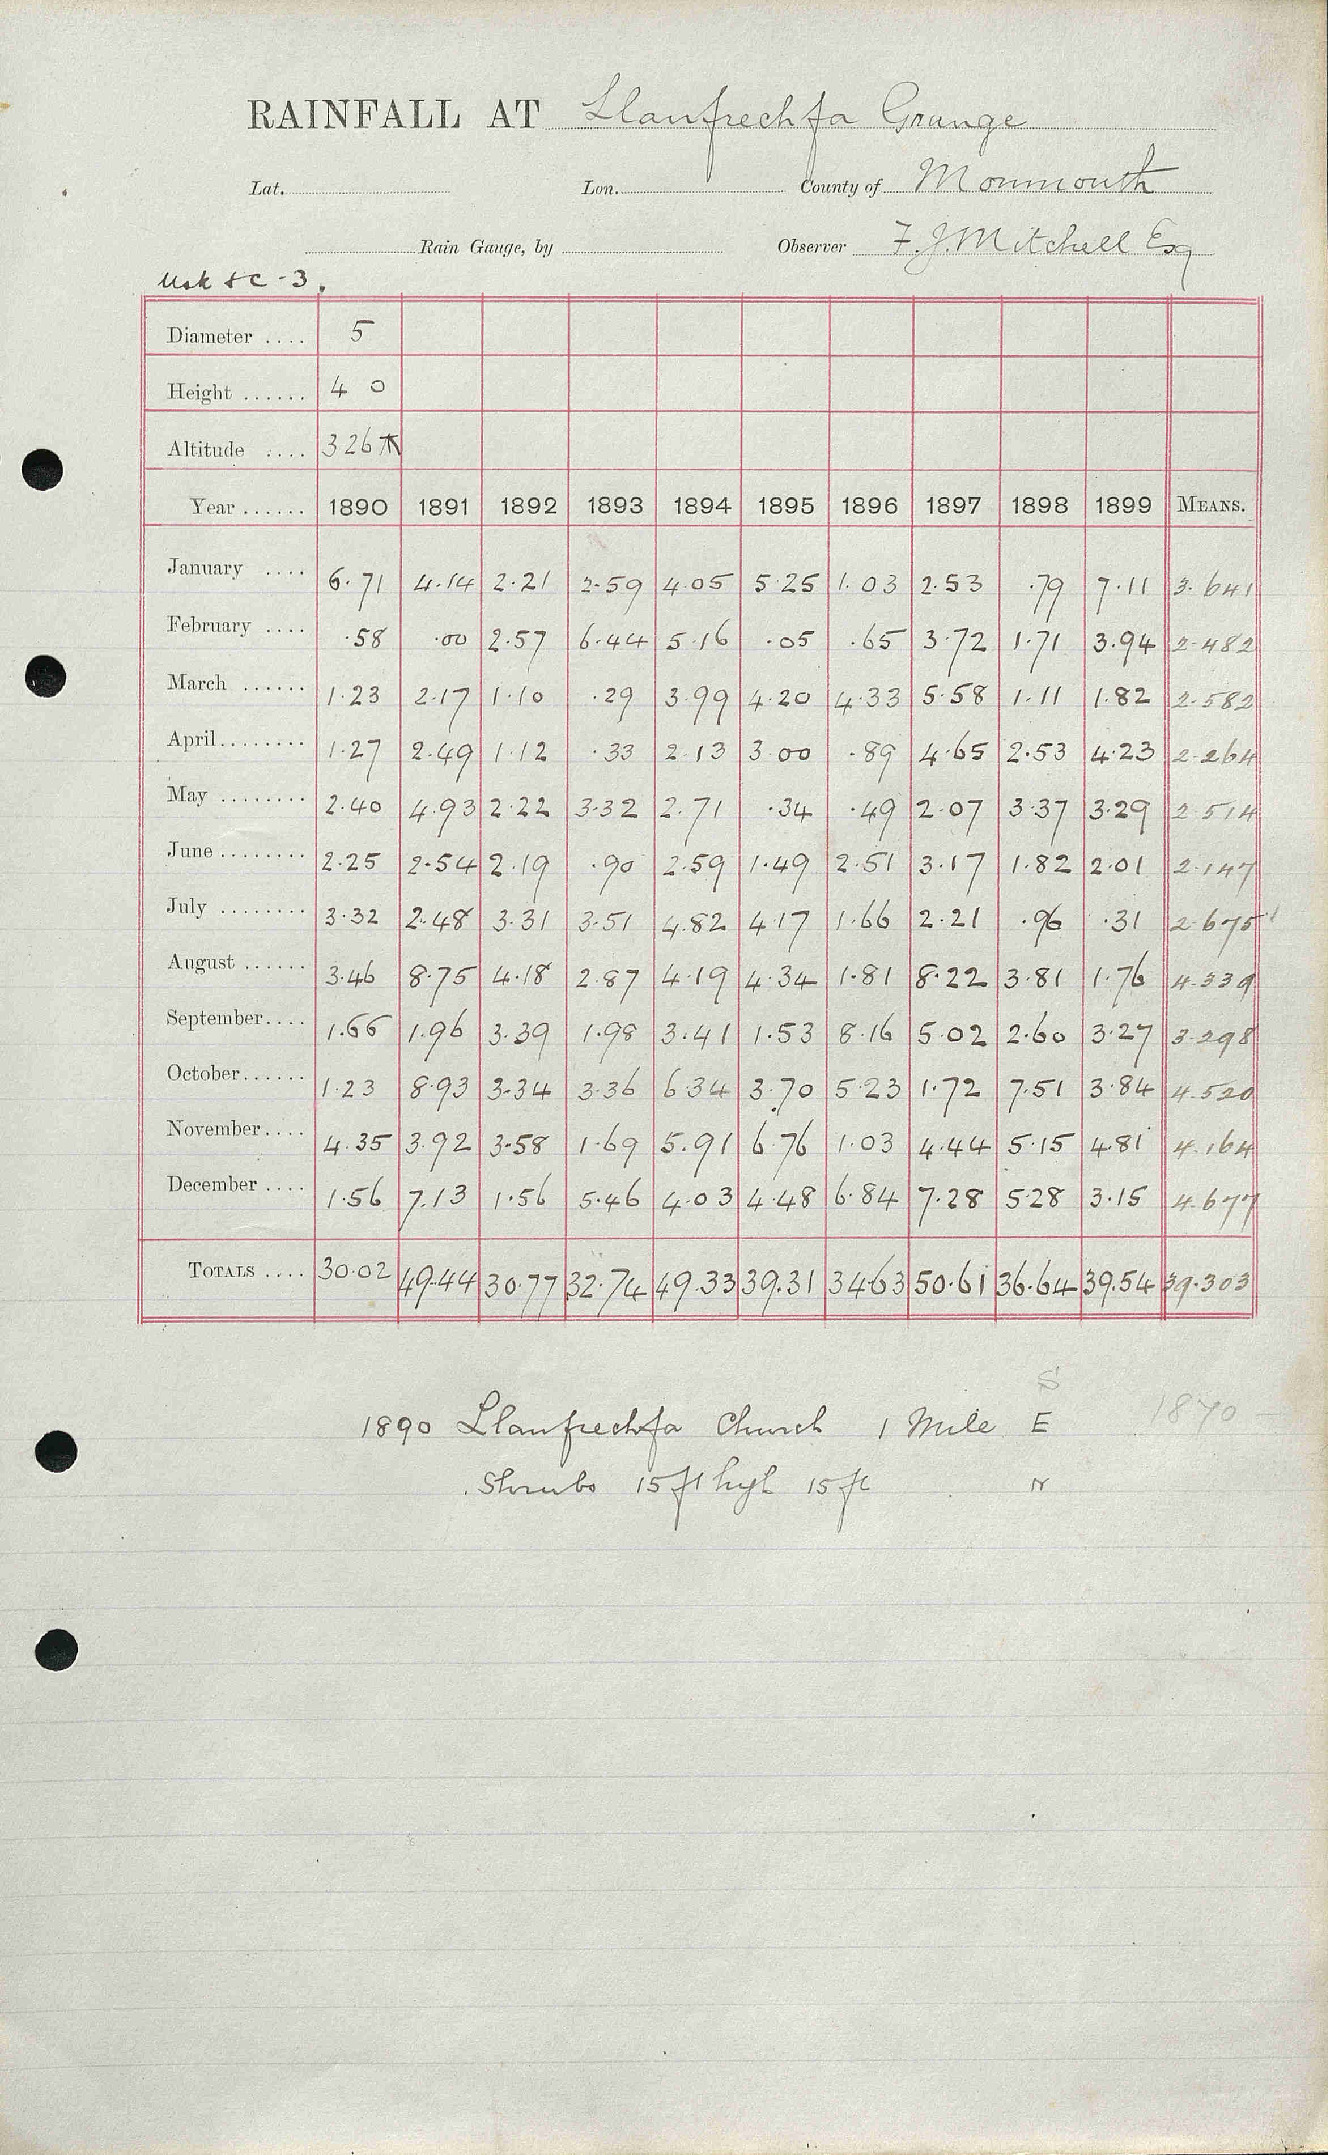 RAINFALL AT Llanfrechfa Grange
Lat. Lon. County of Monmouth
Rain Gauge, by Observer F. J. Mitchell Esq
Usk &c - 3.
Diameter .... 5
Height ...... 4 0
Altitude .... 326 ft
Year ...... 1890 1891 1892 1893 1894 1895 1896 1897 1898 1899 MEANS.
January .... 6.71 4.14 2.21 2.59 4.05 5.25 1.03 2.53 .79 7.11 3.641
February .... .58 .00 2.57 6.44 5.16 .05 .65 3.72 1.71 3.94 2.482
March ...... 1.23 2.17 1.10 .29 3.99 4.20 4.33 5.58 1.11 1.82 2.582
April........ 1.27 2.49 1.12 .33 2.13 3.00 .89 4.65 2.53 4.23 2.264
May ........ 2.40 4.93 2.22 3.32 2.71 .34 .49 2.07 3.37 3.29 2.514
June ........ 2.25 2.54 2.19 .90 2.59 1.49 2.51 3.17 1.82 2.01 2.147
July ........ 3.32 2.48 3.31 3.51 4.82 4.17 1.66 2.21 .96 .31 2.675
August ...... 3.46 8.75 4.18 2.87 4.19 4.34 1.81 8.22 3.81 1.76 4.339
September.... 1.66 1.96 3.39 1.98 3.41 1.53 8.16 5.02 2.60 3.27 3.298
October...... 1.23 8.93 3.34 3.36 6.34 3.70 5.23 1.72 7.51 3.84 4.520
November.... 4.35 3.92 3.58 1.69 5.91 6.76 1.03 4.44 5.15 4.81 4.164
December .... 1.56 7.13 1.56 5.46 4.03 4.48 6.84 7.28 5.28 3.15 4.677
TOTALS .... 30.02 49.44 30.77 32.74 49.33 39.31 34.63 50.61 36.64 39.54 39.303
S
1890 Llanfrechfa Church 1 Mile E 1870
Shrubs 15 ft high 15 ft N